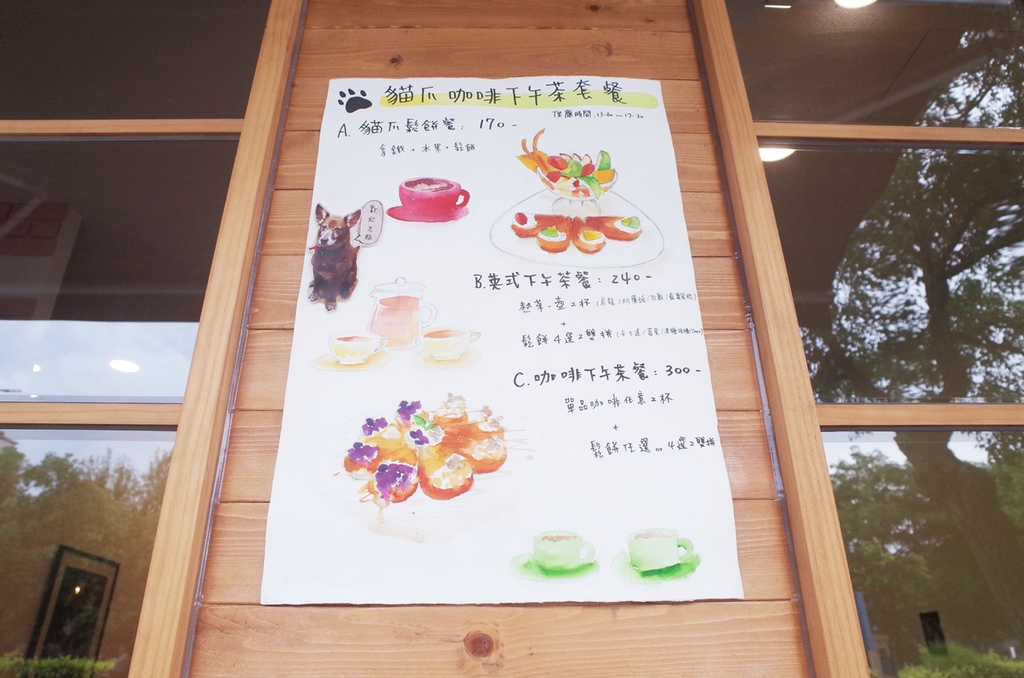 貓爪咖啡下午茶套餐
供應時間:13:30~17:30
A. 貓爪鬆餅餐: 170-
拿鐵+水果+鬆餅
B.英式下午茶餐: 240-
熱茶一壺2杯
+
鬆餅4選2雙拼
C.咖啡下午茶餐:300-
單品咖啡任意2杯
+
鬆餅任選or4選2雙拼